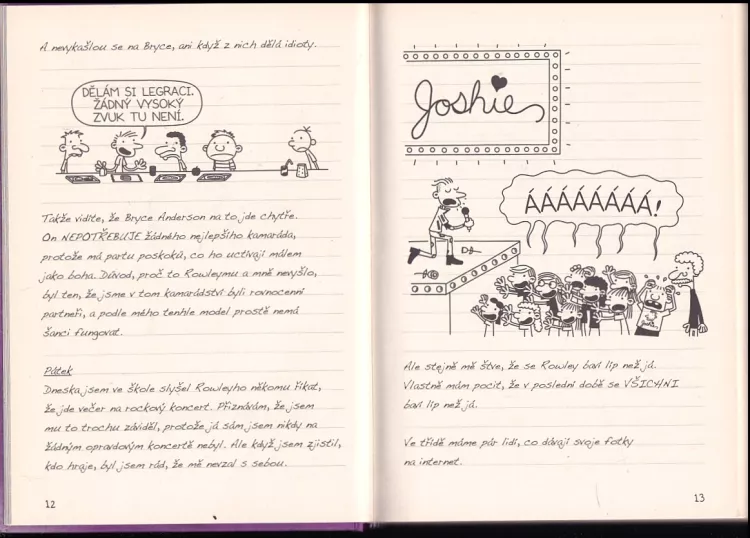 A nevykašlou se na Bryce, ani když z nich dělá idioty.
DĚLÁM SI LEGRACI.
ŽÁDNÝ VYSOKÝ
ZVUK TU NENÍ.
Takže vidíte, že Bryce Anderson na to jde chytře.
On NEPOTŘEBUJE žádného nejlepšího kamaráda,
protože má partu poskoků, co ho uctívají málem
jako boha. Důvod, proč to Rowleymu a mně nevyšlo,
byl ten, že jsme v tom kamarádství byli rovnocenní
partneři, a podle mého tenhle model prostě nemá
šanci fungovat.
Pátek
Dneska jsem ve škole slyšel Rowleyho někomu říkat,
že jde večer na rockový koncert. Přiznávám, že jsem
mu to trochu záviděl, protože já sám jsem nikdy na
žádným opravdovým koncertě nebyl. Ale když jsem zjistil,
kdo hraje, byl jsem rád, že mě nevzal s sebou.
12
Joshie
ÁÁÁÁÁÁÁÁ!
Ale stejně mě štve, že se Rowley baví líp než já.
Vlastně mám pocit, že v poslední době se VŠICHNI
baví líp než já.
Ve třídě máme pár lidí, co dávají svoje fotky
na internet.
13